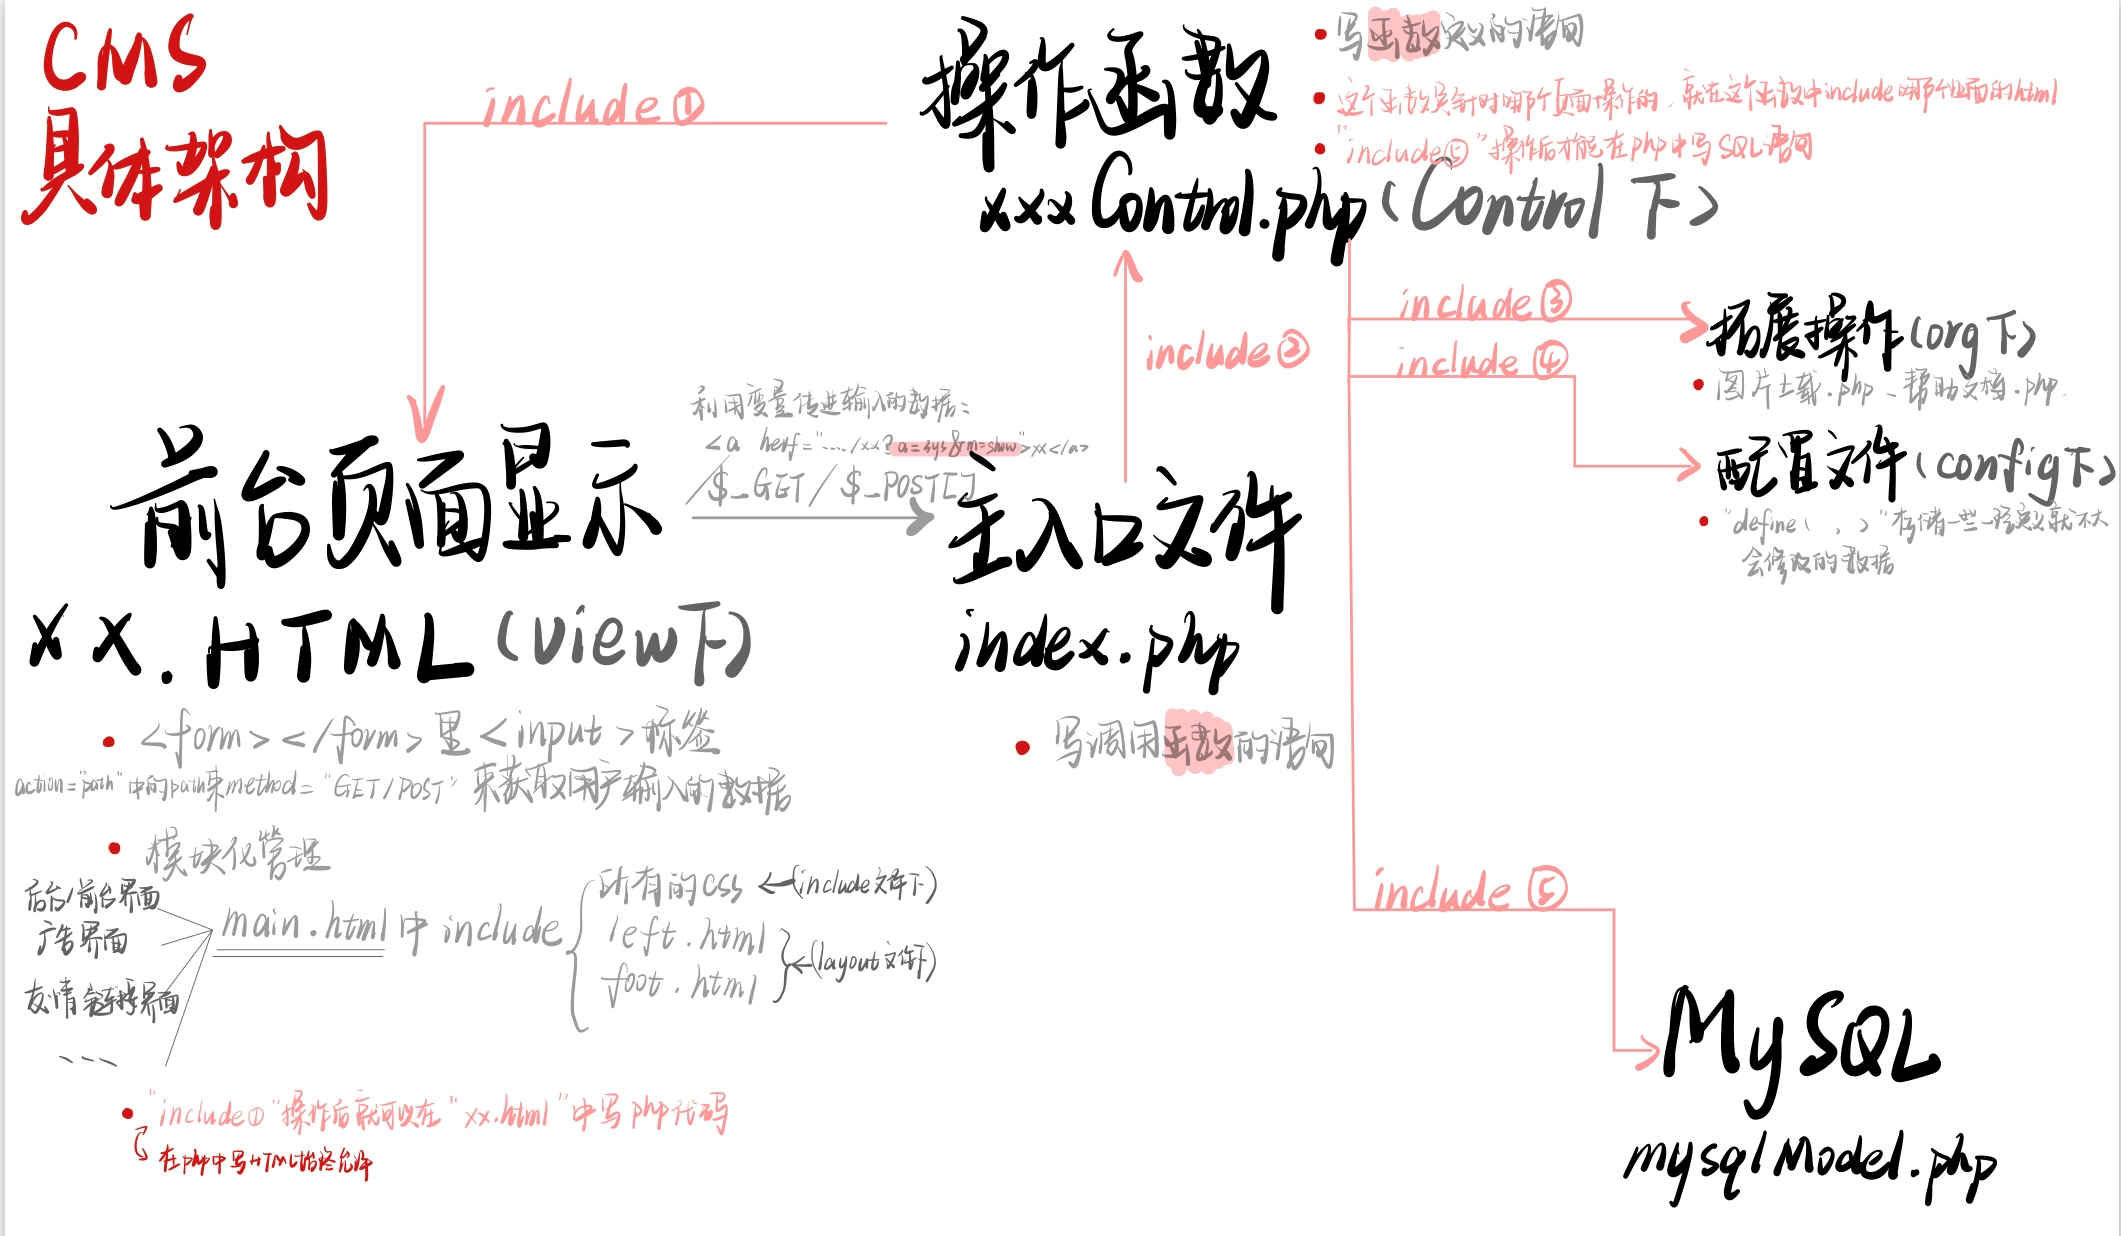 CMS
具体架构
include①
操作函数
xxxControl.php(Control下)
写函数定义的语句
这个函数是针对哪个页面操作的，就在这个函数中include哪个页面的html
"include⑤"操作后才能在php中写SQL语句
include②
include③
拓展操作(org下)
图片上载.php、帮助文档.php
include④
配置文件(config下)
"define( , )"存储一些一经定义就不大
会修改的数据
利用变量传递输入的数据:
<a herf="..../xx?a=sys&m=show">xx</a>
/$_GET/$_POST[]
前台页面显示
xx.HTML(view下)
主入口文件
index.php
写调用函数的语句
<form></form>里<input>标签
action="path"中的path来method="GET/POST"来获取用户输入的数据
模块化管理
后台/前台界面
广告界面
友情链接界面
...
main.html中include
所有的css←(include文件下)
left.html
foot.html
←(layout文件下)
"include①"操作后就可以在"xx.html"中写php代码
在php中写HTML始终允许
include⑤
MySQL
mysqlModel.php